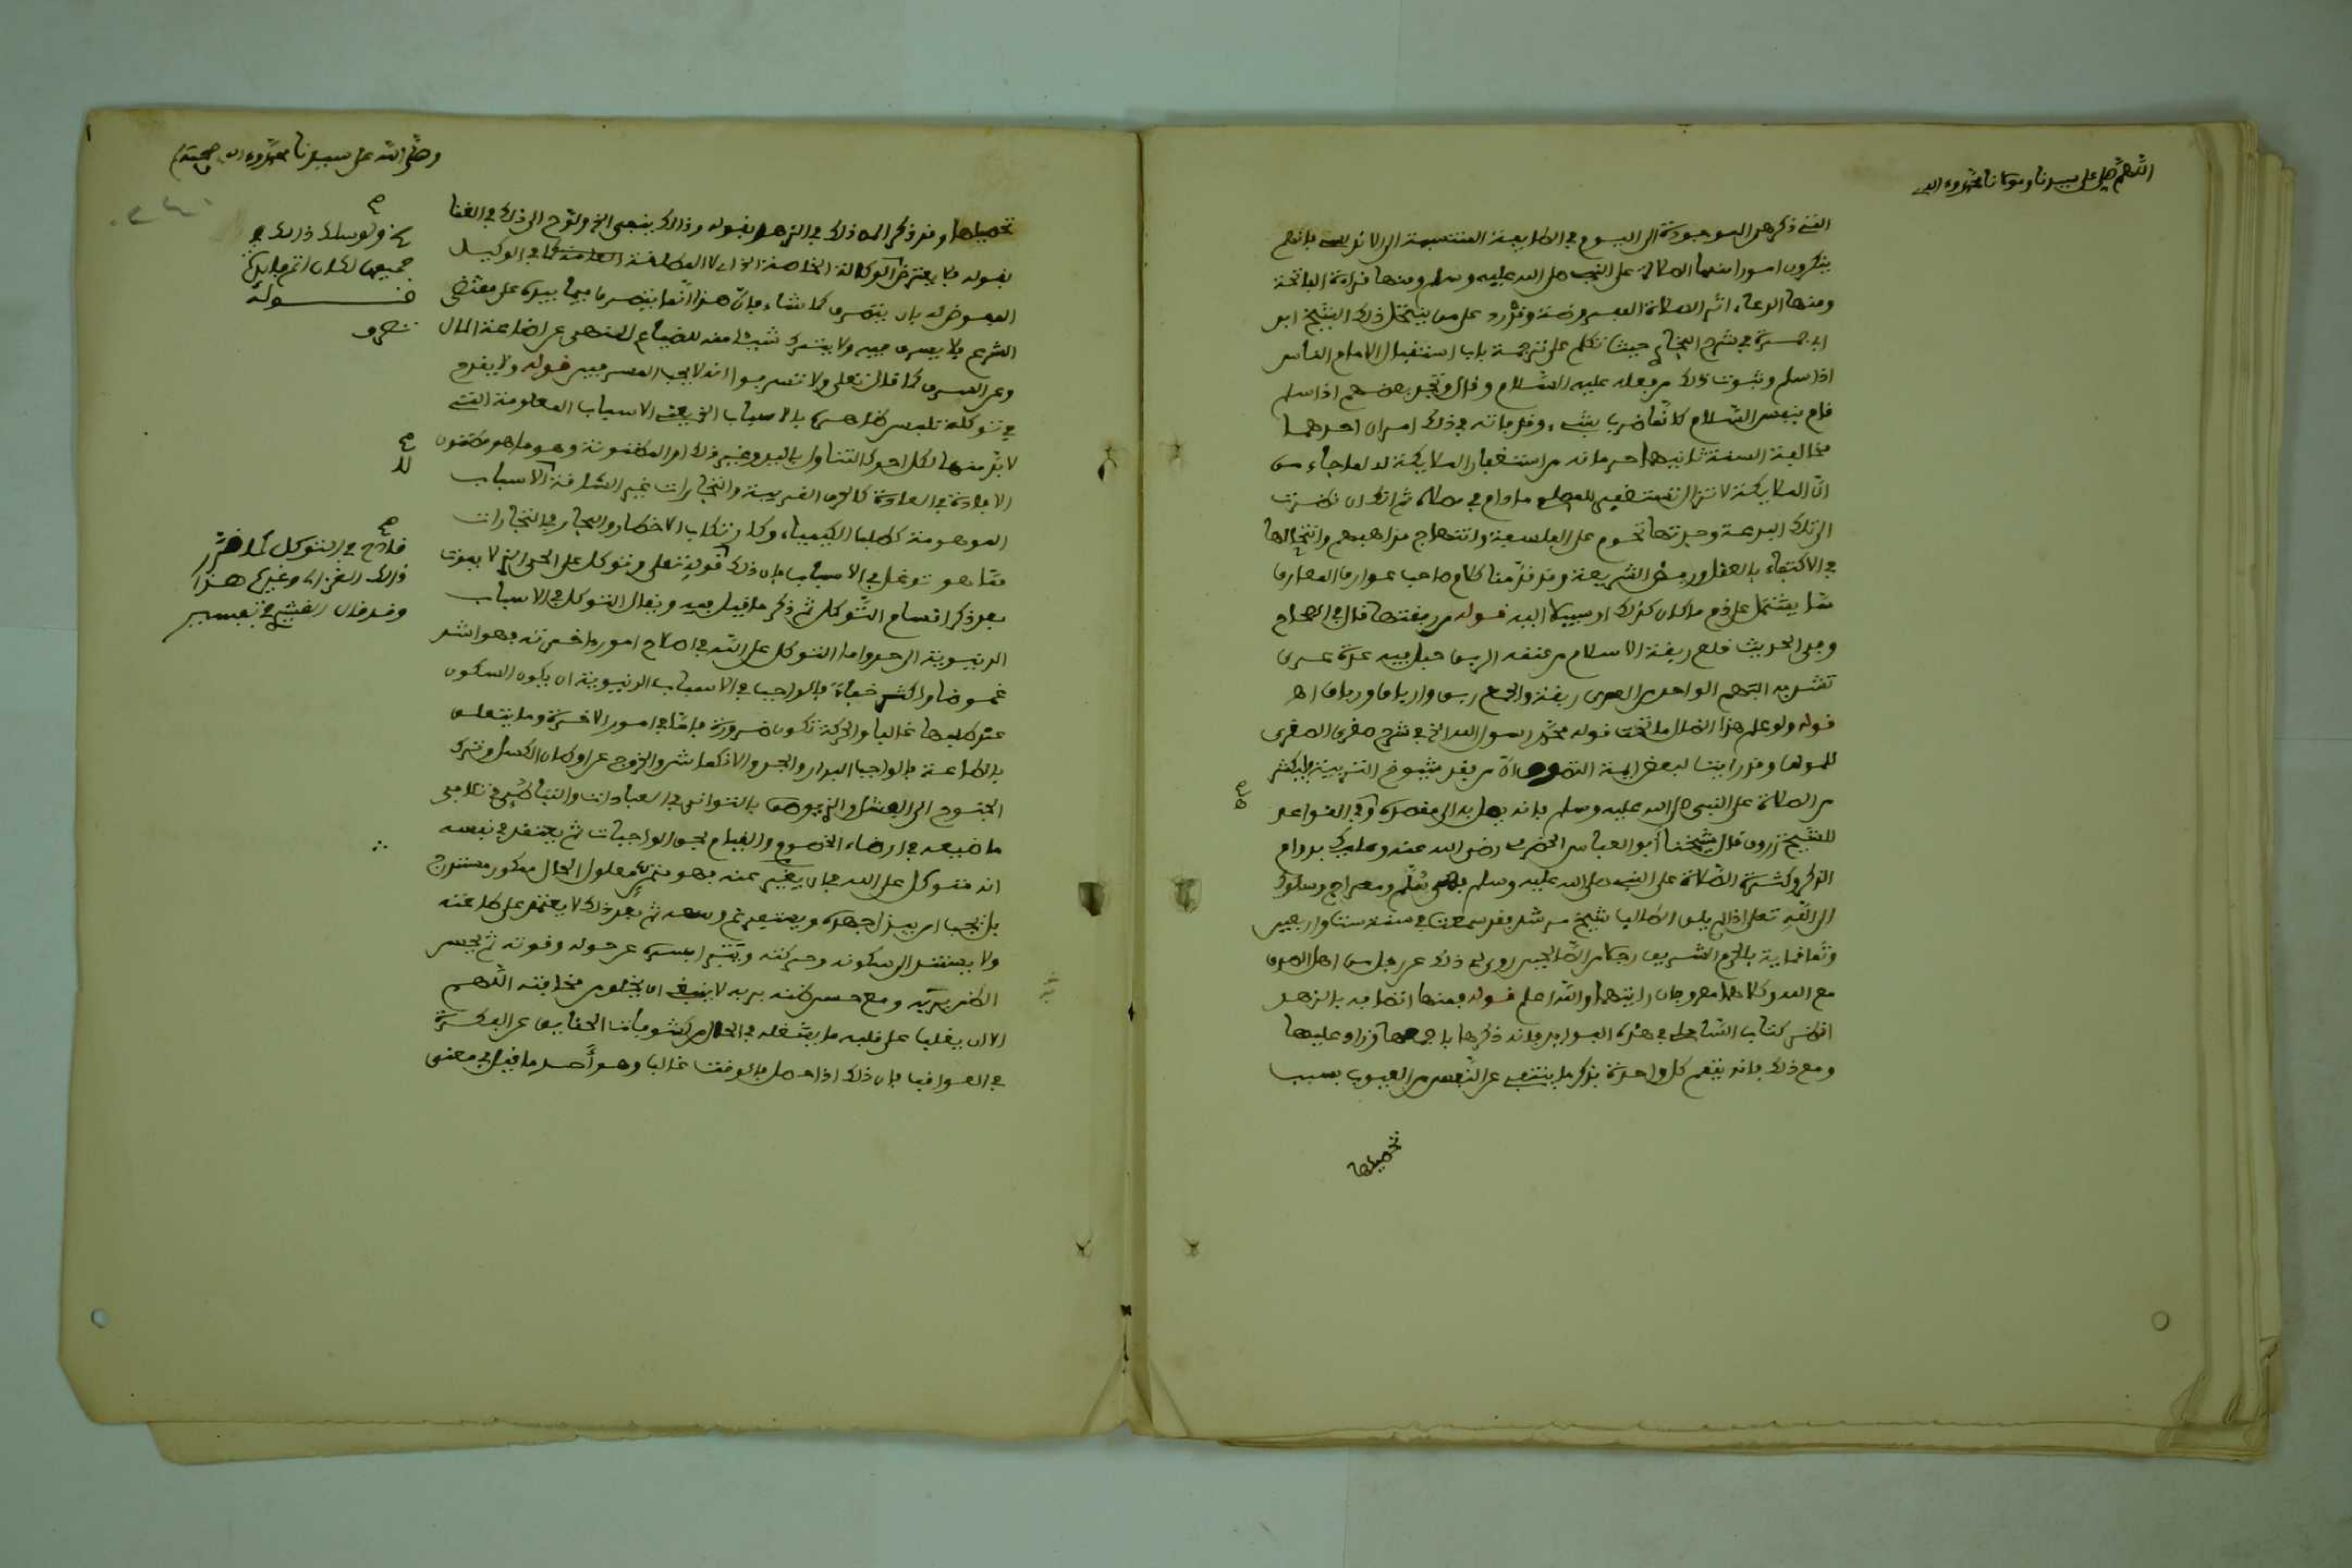 اللهم صل على سيدنا ومولانا محمد وءاله
التي ذكر هي الموجودة الى اليوم في الطايفة المنتسبة الى الاندلس فانهم
ينكرون امورا منها الصلاة على النبي صلى الله عليه وسلم ومنها قراءة الفاتحة
ومنها الدعاء اثر الصلاة المفروضة وقد رد على من ينتحل ذلك الشيخ ابو
ابي جمرة في شرح البخاري حيث تكلم على ترجمة باب استقبال الامام الناس
اذا سلم وثبوت ذلك من فعله عليه السلام وقال وتجد بعضهم اذا سلم
قام بنفس السلام كانما ضرب بشيء وفي ذلك امران احدهما
مخالفة السنة ثانيهما حرمانه من استغفار الملايكة له لما جاء من
ان الملايكة لا تزال تستغفر للمصلي ما دام في مصلاه ثم انك ان نظرت
الى تلك البدعة وجدتها تحوم على الفلسفة وانتهاج مذاهبهم وانتحالها
في الاكتفاء بالعقل ورفض الشريعة وقد قدمنا كلام صاحب عوارف المعارف
مما يشتمل على ذم ما كان كذلك او سبيلا اليه قوله من ربقتها قال في الصحاح
وفي الحديث خلع ربقة الاسلام من عنقه الربق حبل فيه عدة عرى
تشد به البهم الواحد من العرى ربقة والجمع ربق وارباق ورباق اهـ
قوله ولو علم هذا الضال ما تحت قوله محمد رسول الله الخ في شرح صغرى الصغرى
للمولف وقد راينا لبعض ايمة التصوف ان من فقد شيوخ التربية فليكثر
من الصلاة على النبي صلى الله عليه وسلم فانه يصل به الى مقصده وفي القواعد
للشيخ زروق قال شيخنا ابو العباس الحضرمي رضي الله عنه وعليك بدوام
الذكر وكثرة الصلاة على النبي صلى الله عليه وسلم فهي سلم ومعراج وسلوك
الى الله تعلى اذا لم يلق الطالب شيخ مرشد فقد سمعت في سنة ست واربعين
وثمانماية بالحرم الشريف رجلا من الصالحين روى لي ذلك عن رجل من اهل الصدق
مع الله وكلاهما معروفان رايتهما والله اعلم قوله فمنها اتصافه بالزهد
انظر كتاب الشاطبي في هذه الفوايد فانه ذكرها باجمعها وزاد عليها
ومع ذلك فانه يتبع كل واحدة بذكر ما ينتفي عن النفس من العيوب بسبب
تحصيلها
وصلى الله على سيدنا محمد وءاله وصحبه
تحصيلها وقد ذكر المص ذلك في الزهد بقوله وذلك ينفي الخ ولوح الى ذلك في الغنا
بقوله فلا يعترض الوكالة الخاصة الخ اي لا المطلقة العامة كما في الوكيل
المفوض له بان يتصرف كما شاء فان هذا انما يتصرف فيما بيده على مقتضى
الشرع فلا يسرف فيه ولا يترك شيئا منه للضياع للنهي عن اضاعة المال
وعن السرف كما قال تعلى ولا تسرفوا انه لا يحب المسرفين قوله ولا يقدح
في توكله تلبس ظاهره بالاسباب الخ يعني الاسباب المعلومة التي
لا بد منها لكل احد كالتناول باليد وغير ذلك او المظنونة وهو ما هو مظنون
الافادة في العادة كالحرف القريبة والتجارات غير الشاقة لا الاسباب
الموهومة كطلب الكيمياء وكارتكاب الاخطار والبحار في التجارات
مما هو توغل في الاسباب فان ذلك قوله تعلى وتوكل على الحي الذي لا يموت
بعد ذكر اقسام التوكل ثم ذكر ما قيل فيه ويقال التوكل في الاسباب
الدنيوية الى حد واما التوكل على الله في اصلاح امور ءاخرته فهو اشد
غموضا واكثر خفاء فالواجب في الاسباب الدنيوية ان يكون السكون
عن طلبها غالبا والحركة تكون ضرورة فاما في امور الاخرة وما يتعلق
بالطاعة فالواجب البدار والجد والانكماش والخروج عن اوطان الكسل وترك
الجنوح الى الفشل والذي يوصف بالتواني في العبادات والتباطؤ في تلافي
ما ضيعه في ارضاء الخصوم والقيام بحق الواجبات ثم يعتقد في نفسه
انه متوكل على الله فهو متمن معلول الحال ممكور مستدرج
بل يجب ان يبذل جهده ويستفرغ وسعه ثم بعد ذلك لا يعتمد على طاعته
ولا يستند الى سكونه وحركته ويتبرا بسره عن حوله وقوته ثم يحسن
الظن بربه ومع حسن ظنه بربه لا ينبغي ان يخلو من مخافته اللهم
الا ان يغلب على قلبه ما يشغله في الحال من كشوفات الحقايق عن الفكرة
في العواقب فان ذلك اذا حصل فالوقت غالب وهو احد ما قيل في معنى
قوله
تصرف
قادح في التوكل كما قرر
ذلك الغزالي وغيره هذا
وقد قال القشيري في تفسير